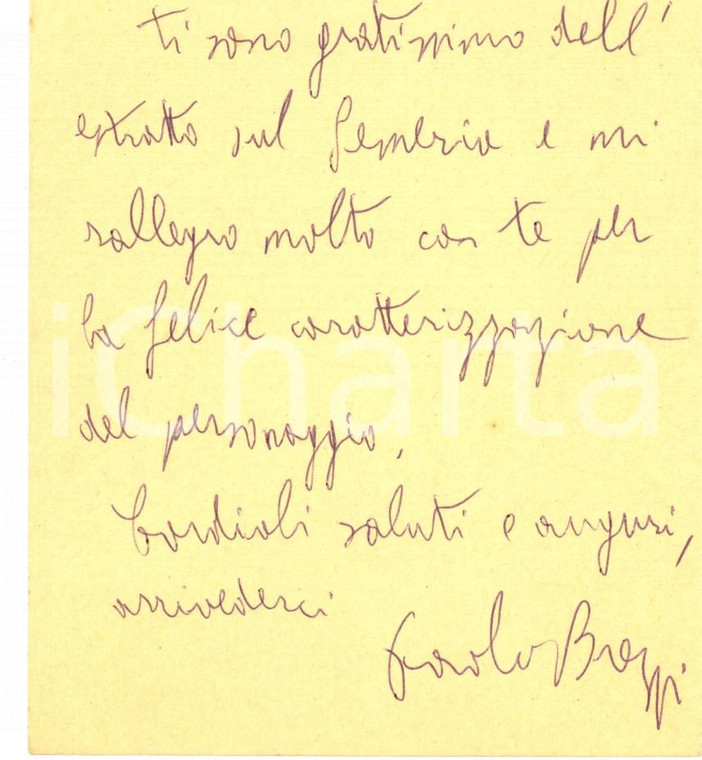 ti sono gratissimo dell'
estratto sul Gemerio e mi
rallegro molto con te per
la felice caratterizzazione
del personaggio.
Cordiali saluti e auguri,
arrivederci
Paolo Brezzi
iCharta